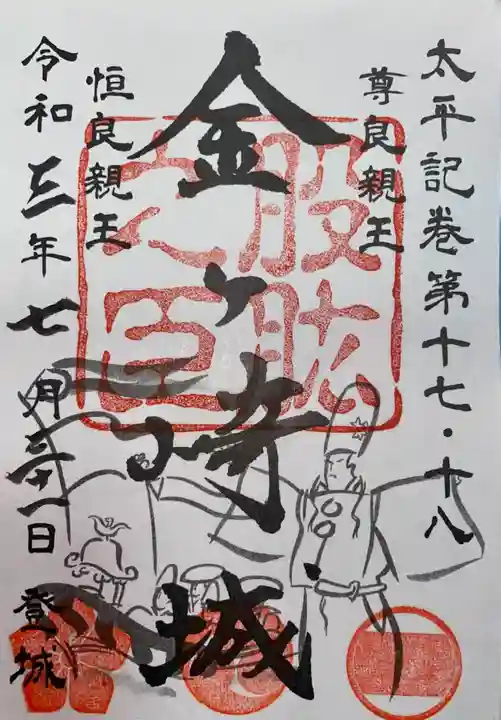 太平記巻第十七・十八
尊良親王
金ヶ崎城
恒良親王
令和三年七月三十一日 登城
股肱
之臣